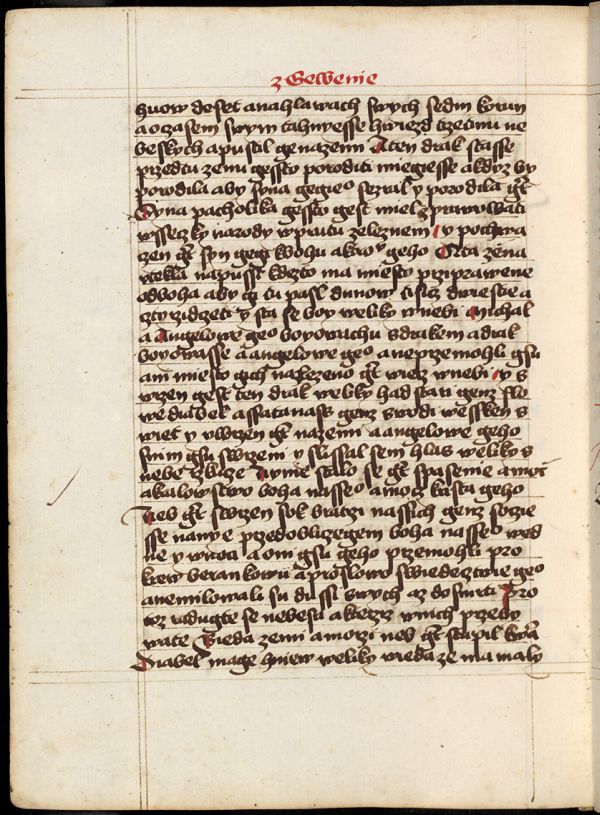 z Gewenie
huow deset anahlawach swych sedm korun
a oczasem swym tahnyesse hwiezd trzetinu ne
beskych apustil genazemi Aten drak stasse
przedtu zenu gessto poroditi miegiesse akdyz by
porodila aby syna gegieo sezral y porodila gt
Syna pacholika gessto gest miel zprawowati
wsseczky narody wprutu zeleznem y pochwa
zen gt syn gegi kbohu aktronu geho Ata zena
vtekla napusst kdezto ma miesto prziprawene
odboha aby gi tu pasl dnuow tisicz dwiestie a
ssestdesat y sta se boy weliky wnebi Michal
a Angelowe geo boyowachu sdrakem adrak
boyowasse a angelowe geo aneprzemohli gsu
ani miesto gich nalezeno gt wiecz wnebi y s
wrzen gest ten drak weliky had stari genz slo
we diabel assatanass genz swodi wessken s
wiet y vwrzen gt nazemi a angelowe geho
snim gsu swrzeni y slissal sem hlas weliky s
nebe rzkucze Nynie stalo se gt spasenie a moc
akralowstwo boha nasseo amocz krista geho
Neb gt swrzen sok bratrzi nassich genz soczie
sse nanye przedoblizegem boha nasseo wed
ne y wnoci a oni gsu geho przemohli pro
krew berankowu aproslowo swiedecztwie geo
anemilowali su dussi swych az do smrti Pro
toz radugte se nebesa akterzi wnich przeby
wate Bieda zemi amorzi neb gt stupil kwam
Diabel mage hniew weliky wieda ze ma maly